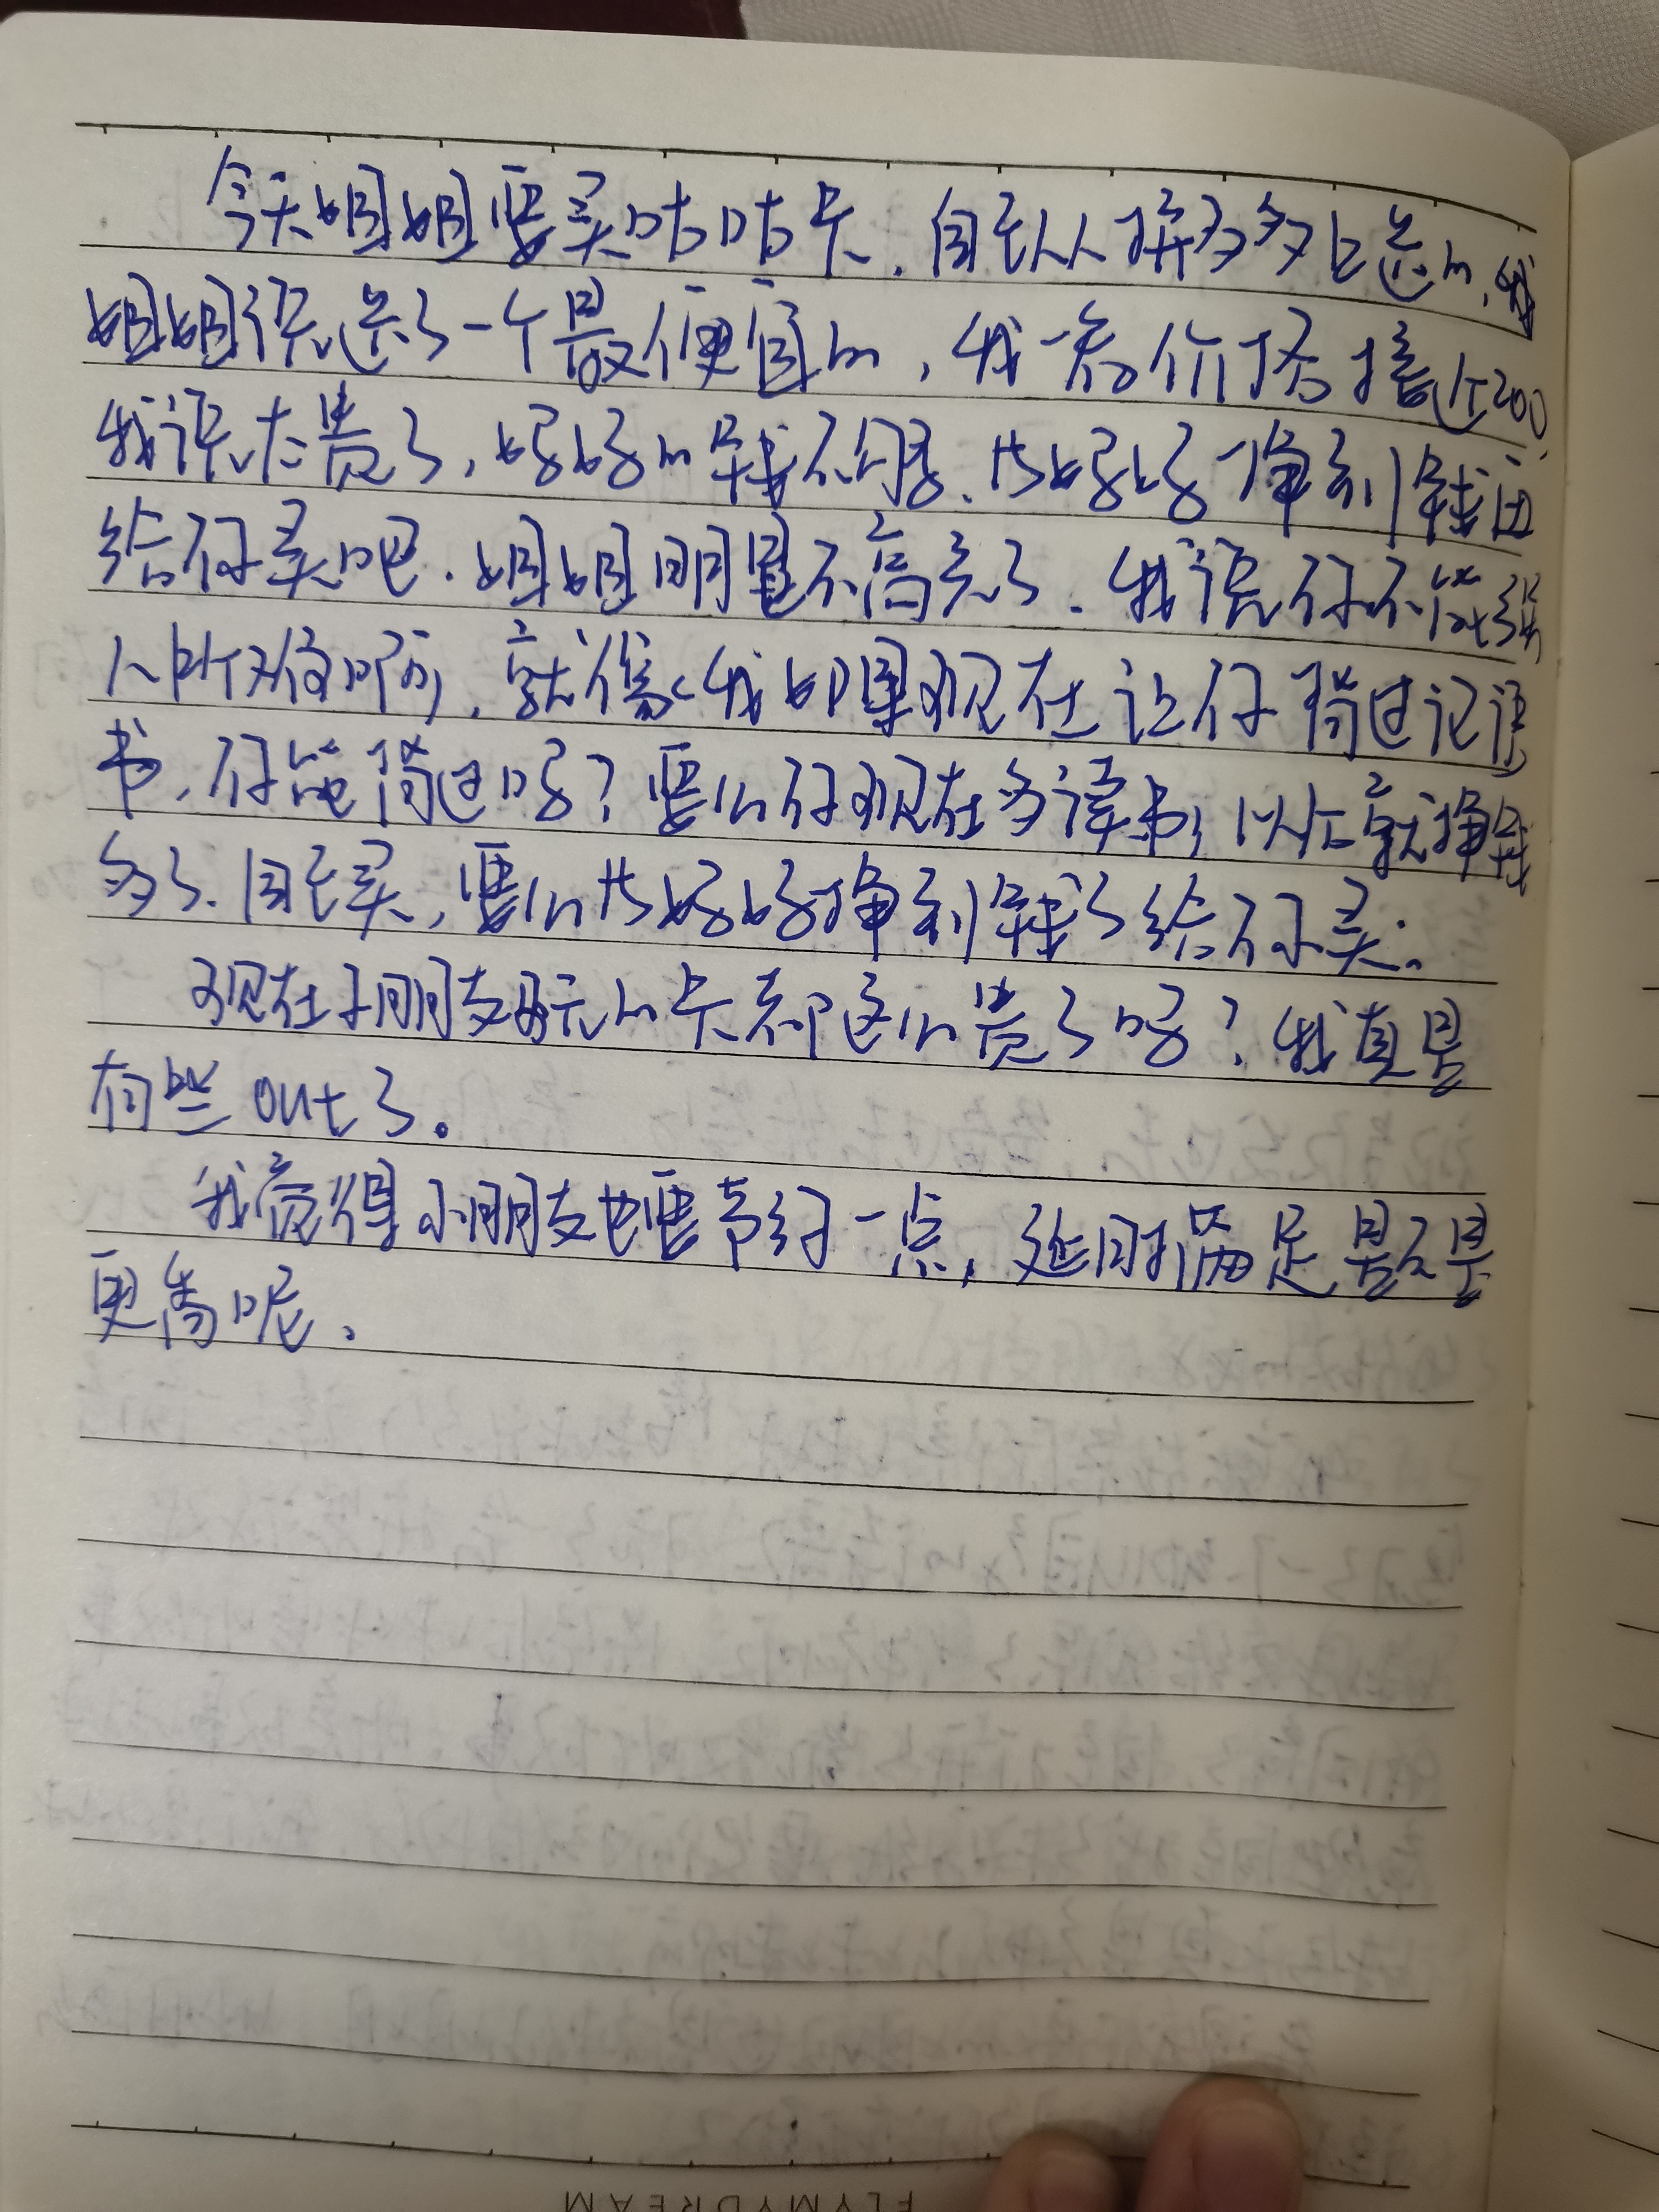 今天姐姐要买咕咕卡，自己从拼多多上选的，
姐姐说选了一个最便宜的，我一看价格接近200，
我说太贵了，妈妈的钱不够，等妈妈挣到钱再
给你买吧．姐姐明显不高兴了．我说你不能强
人所难啊，就像我如果现在让你背过
书，你能背过吗？要么你现在多读书，以后就挣钱
多了．自己买，要么等妈妈挣到钱了给你买。
现在小朋友玩的卡都这么贵了吗？我真是
有些out了。
我觉得小朋友也要节约一点，延时满足是不是
更香呢．
FLYMYDREAM